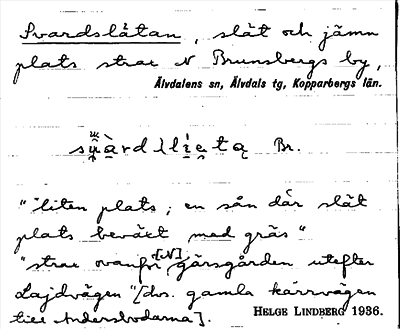 Svardslåtan, slät och jämn
plats strax N Brunsbergs by,
Älvdalens sn, Älvdals tg, Kopparbergs län.
Br.
"liten plats; en sån där slät
plats beväxt med gräs"
"strax ovanför [N] gärsgården utefter
Lajdvägen" [dvs. gamla kärrvägen
till Andersbodarna].
HELGE LINDBERG 1936.